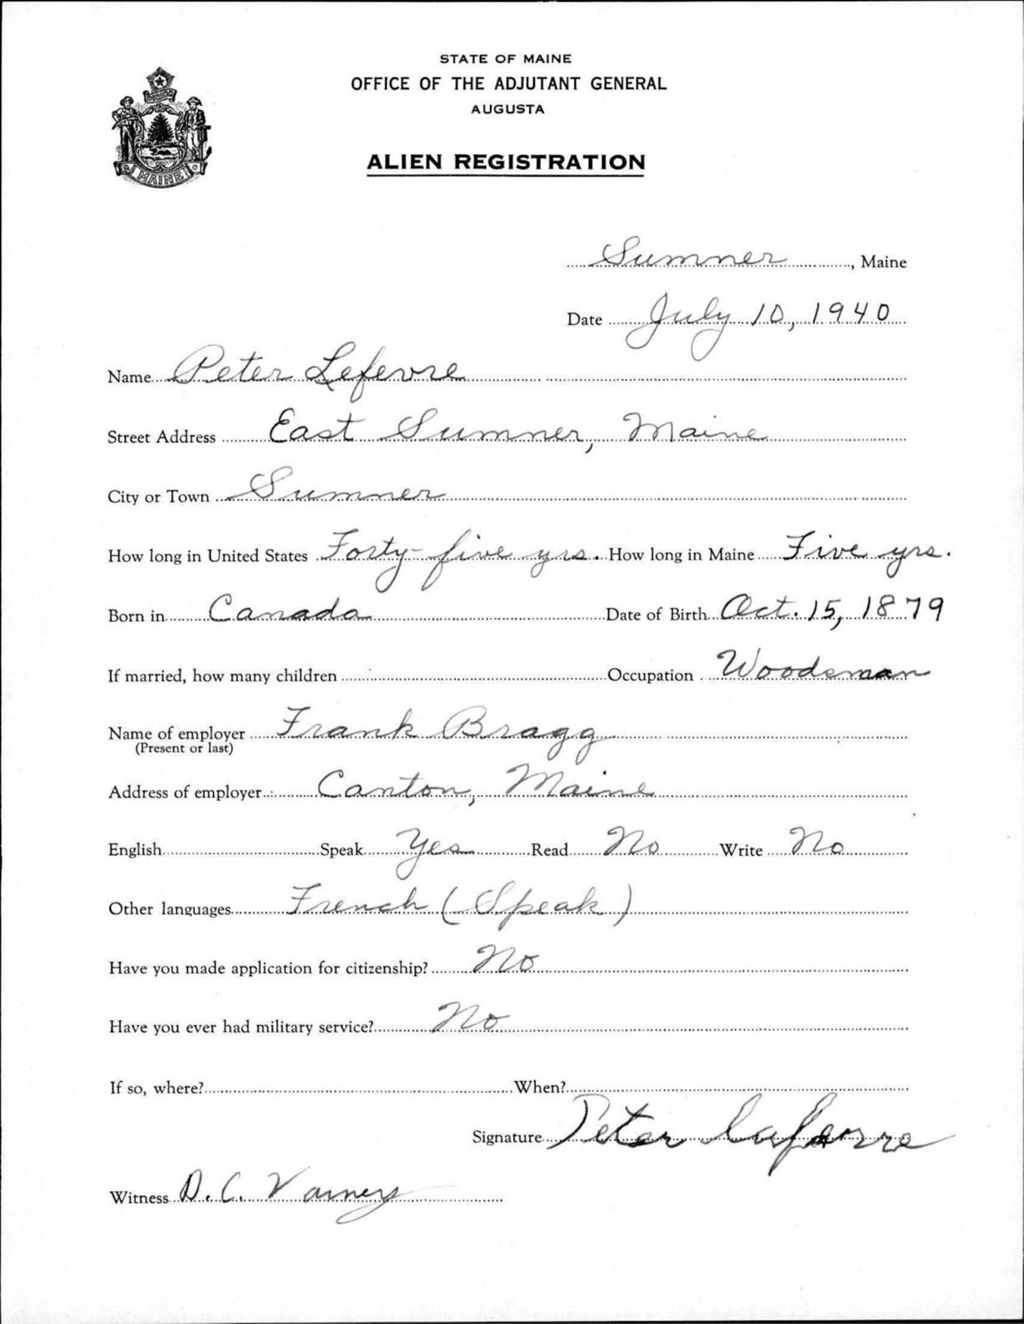 STATE OF MAINE
OFFICE OF THE ADJUTANT GENERAL
AUGUSTA
MAINE
ALIEN REGISTRATION
Sumner, Maine
Date July 10, 1940
Name Peter Lefevre
Street Address East Sumner, Maine
City or Town Sumner
How long in United States Forty-five yrs. How long in Maine Five yrs.
Born in Canada Date of Birth Oct. 15, 1879
If married, how many children Occupation Woodsman
Name of employer Frank Bragg
(Present or last)
Address of employer Canton, Maine
English Speak Yes Read No Write No
Other languages French (Speak)
Have you made application for citizenship? No
Have you ever had military service? No
If so, where? When?
Signature Peter
Witness D. C. Varney